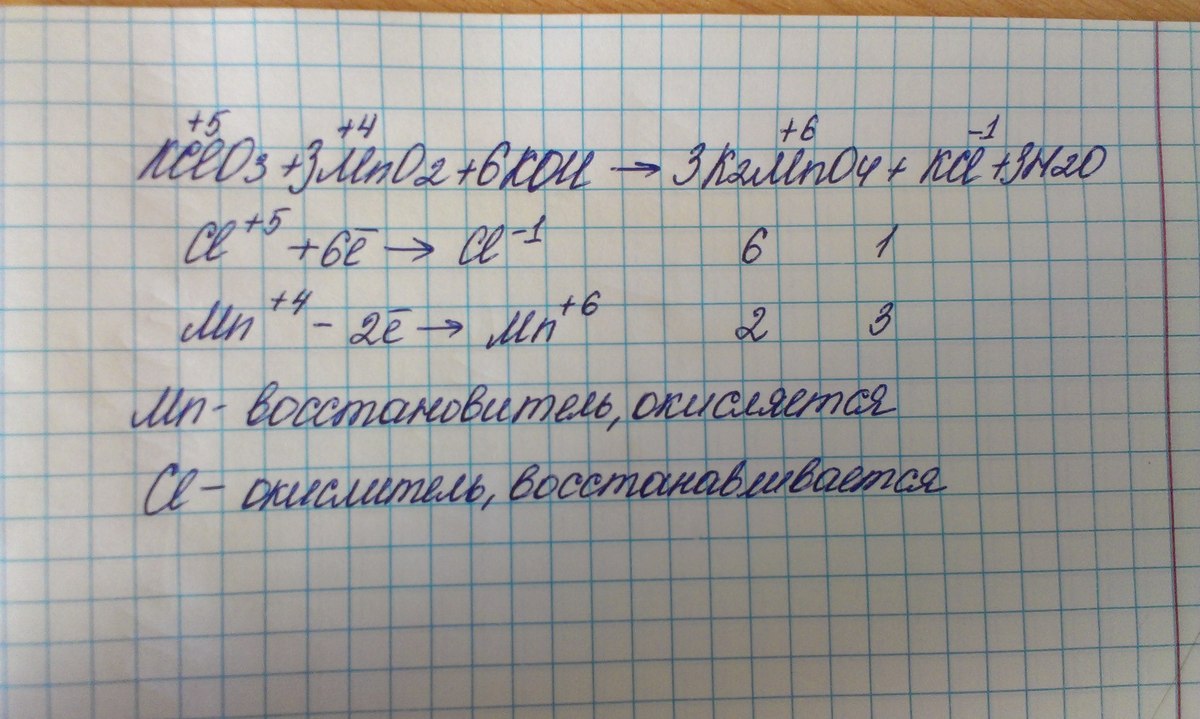 KClO3 + 3MnO2 + 6KOH → 3K2MnO4 + KCl + 3H2O
+5 +4 +6 -1
Cl+5 + 6ē → Cl-1 6 1
Mn+4 - 2ē → Mn+6 2 3
Mn - восстановитель, окисляется
Cl - окислитель, восстанавливается